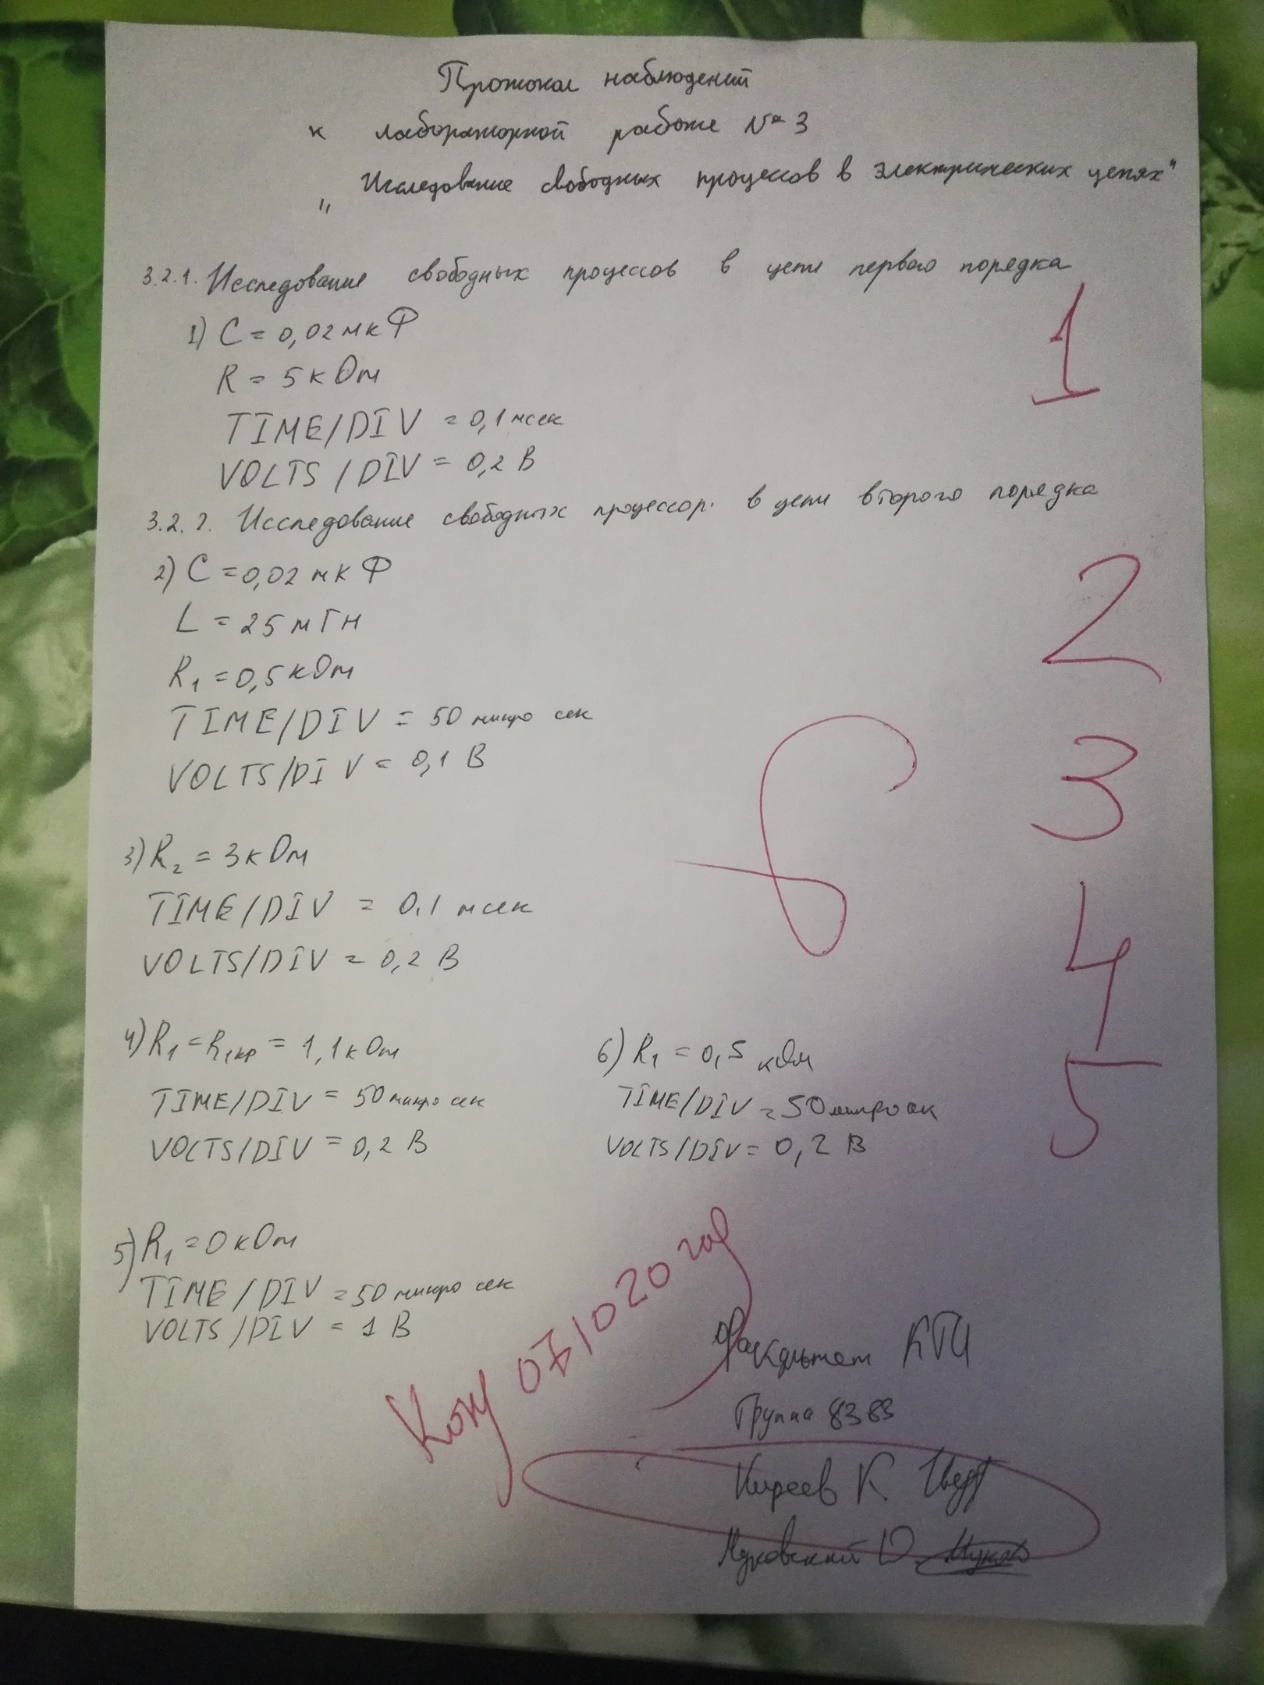 Протокол наблюдений
к лабораторной работе № 3
„Исследование свободных процессов в электрических цепях"
3.2.1. Исследование свободных процессов в цепи первого порядка
1) C = 0,02 мкФ
R = 5 кОм
TIME/DIV = 0,1 мсек
VOLTS/DIV = 0,2 В
3.2.2. Исследование свободных процессор. в цепи второго порядка
2) C = 0,02 мкФ
L = 25 мГн
R₁ = 0,5 кОм
TIME/DIV = 50 микро сек
VOLTS/DIV = 0,1 В
3) R₂ = 3 кОм
TIME/DIV = 0,1 мсек
VOLTS/DIV = 0,2 В
4) R₁ = R₁кр = 1,1 кОм
TIME/DIV = 50 микро сек
VOLTS/DIV = 0,2 В
6) R₁ = 0,5 кОм
TIME/DIV = 50 микро сек
VOLTS/DIV = 0,2 В
5) R₁ = 0 кОм
TIME/DIV = 50 микро сек
VOLTS/DIV = 1 В
1
2
3
4
5
6
071020
Факультет КТИ
Группа 8383
Киреев К
Муковский D.